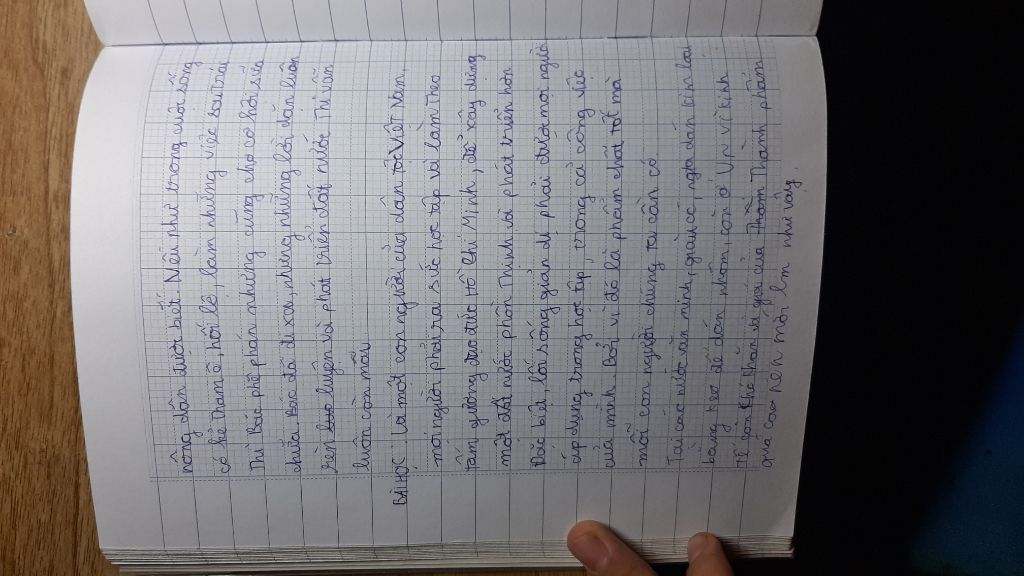 nông dân dưới biết. Nếu như trong cuộc sống
có kẻ tham ô, hối lộ, làm những việc sai trái
Thì Bác phê phán nhưng cũng cho cơ hội sửa
chữa Bác đã đi xa, nhưng những lời dặn luôn
rèn luyện và phát triển đất nước Thì vẫn
luôn còn mãi
BÀI HỌC Là một con người của dân tộc Việt Nam,
mọi người phải ra sức học tập và làm theo
tấm gương đạo đức Hồ Chí Minh, để xây dựng
một đất nước phồn Thịnh và phát triển hơn
Đặc biệt, lối sống giản dị phải được mọi người
áp dụng trong học tập, trong cả công việc
của mình Bởi vì đó là phẩm chất tốt mà
mỗi con người chúng ta cần có
Tại các nước văn minh, giàu có, người dân dán kính loại
bằng keo để dán nhôm, còn ở VN vì kinh
tế còn khó khăn và giá của Thành phẩm
quá cao nên mới lm như vậy.